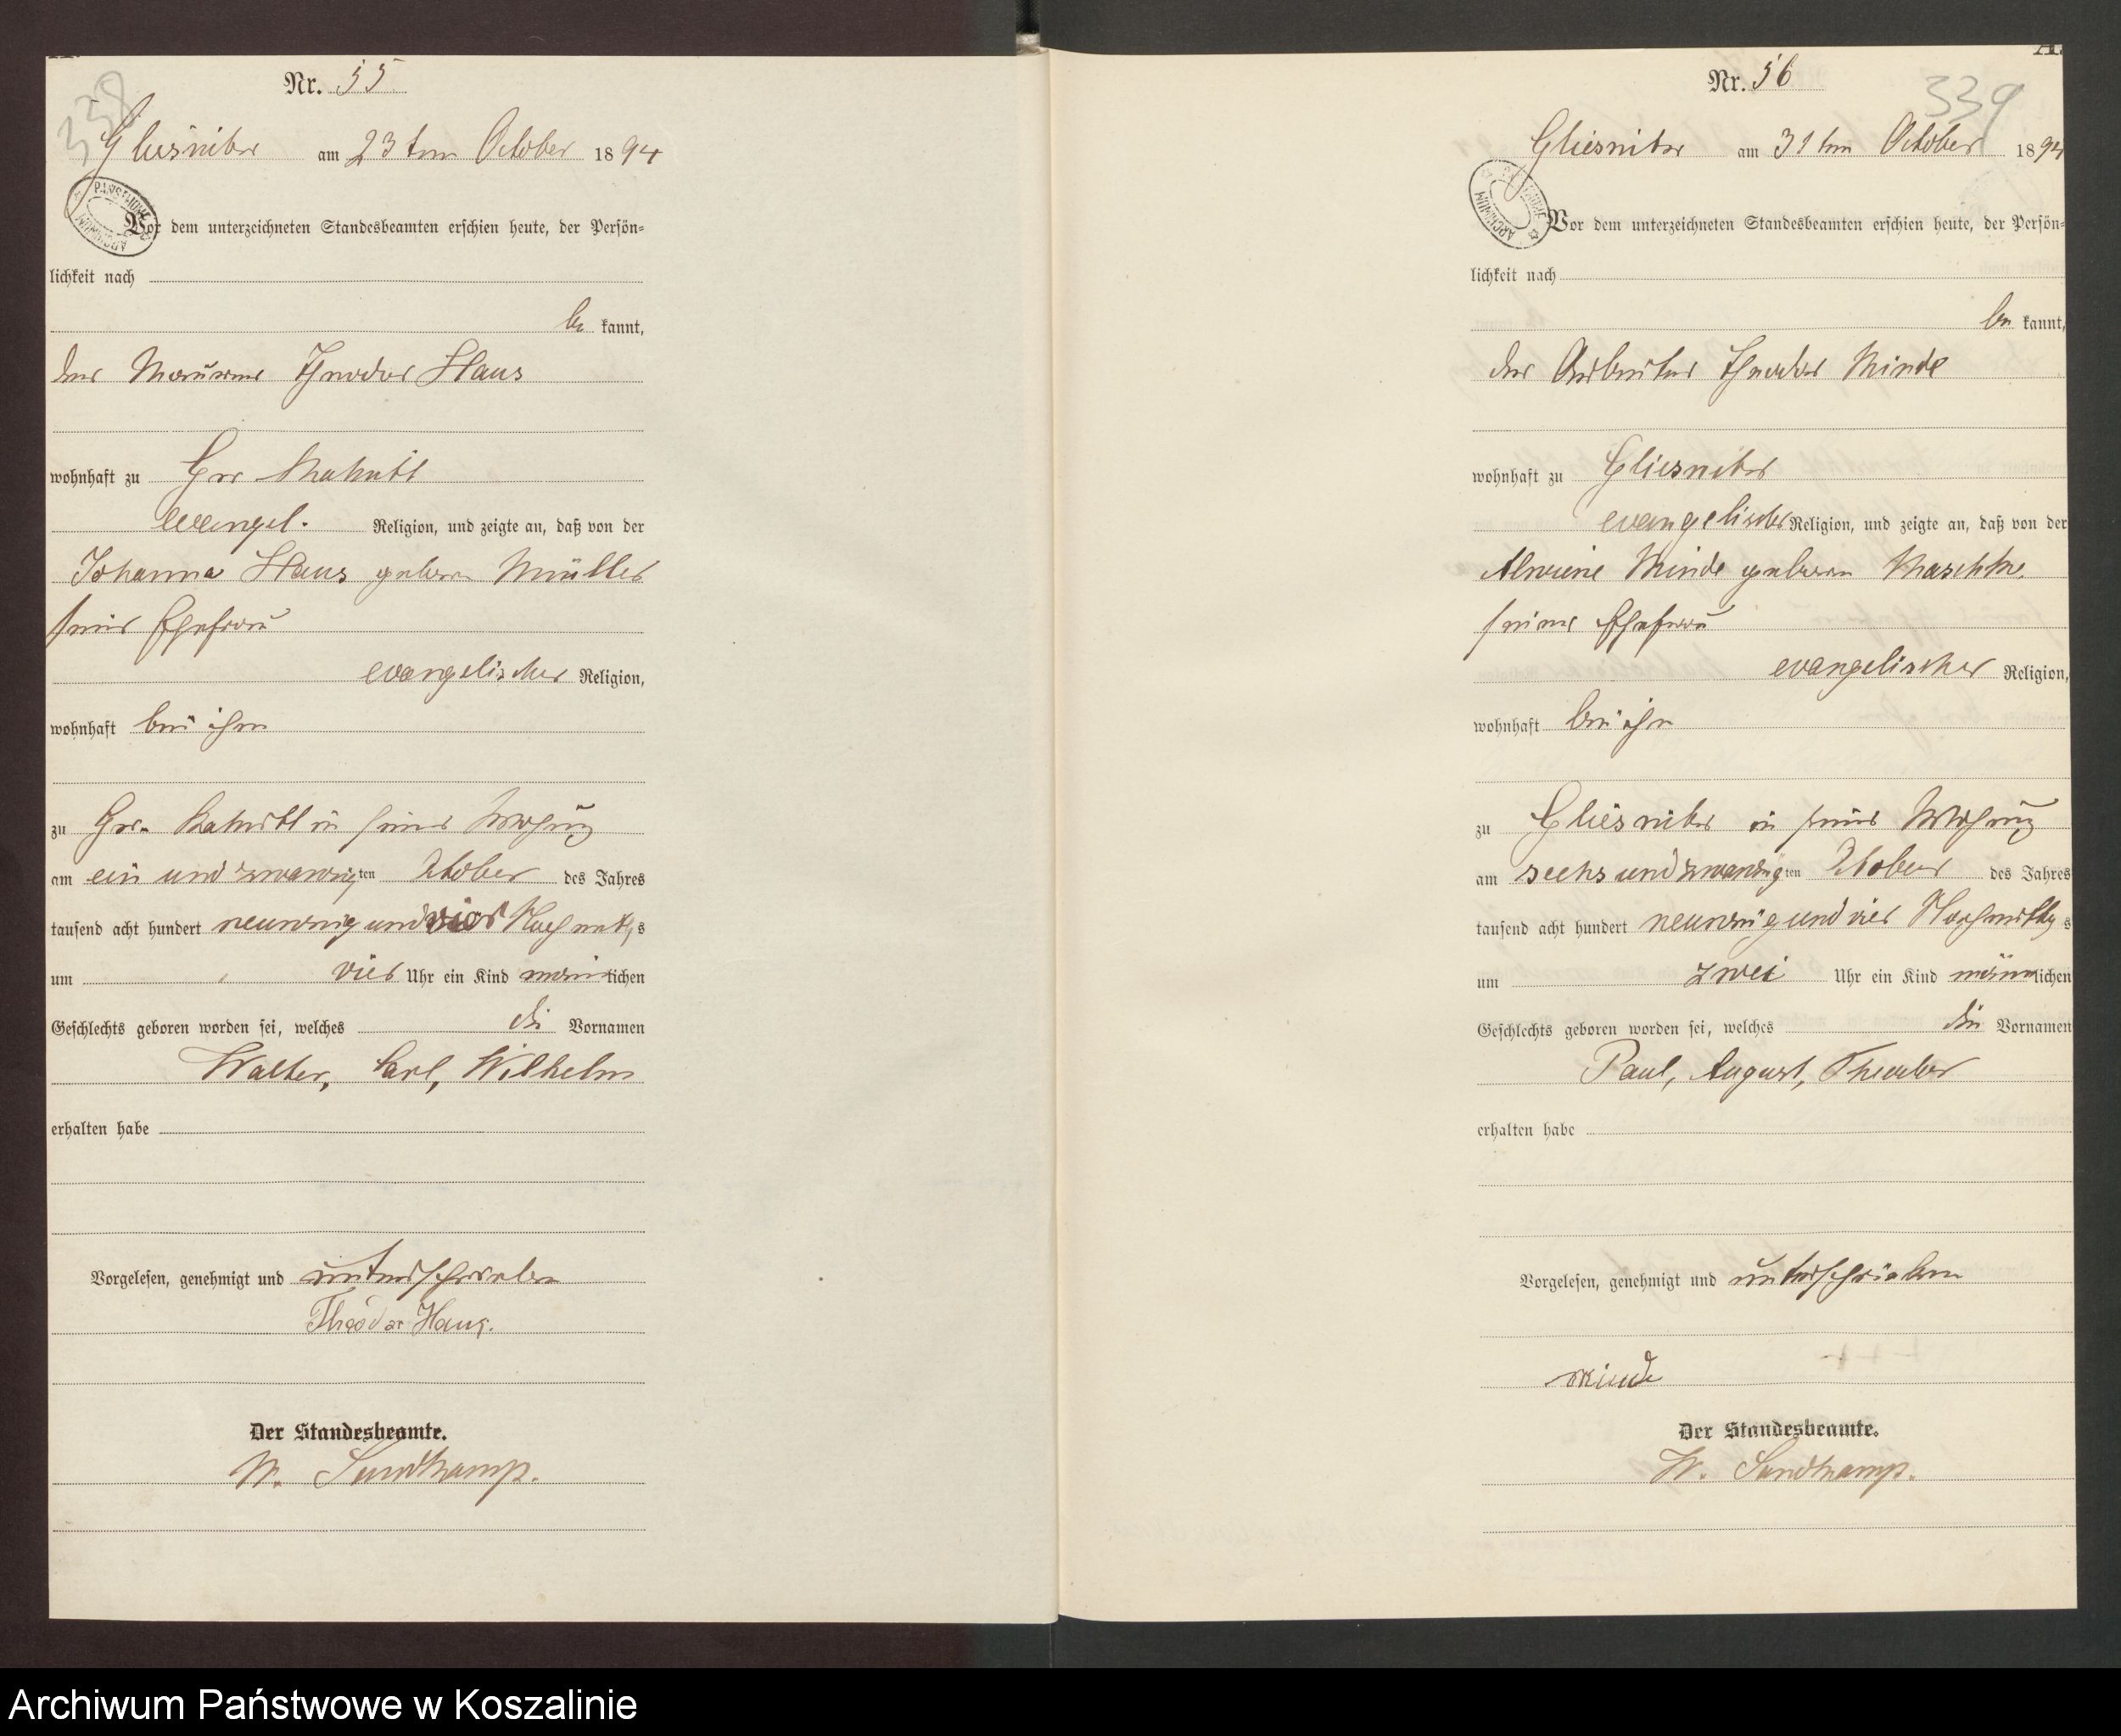 Nr. 55
338
Gliesnitz am 23ten October 1894
Vor dem unterzeichneten Standesbeamten erschien heute, der Persön=
lichkeit nach
be kannt,
der Maurer Theodor Haus
wohnhaft zu Gr.
evangel. Religion, und zeigte an, daß von der
Johanna Haus geboren Müller
seiner Ehefrau
evangelischer Religion,
wohnhaft bei ihm
zu Gr. in seiner Wohnung
am ein und zwanzigten October des Jahres
tausend acht hundert neunzig und vier Nachmittags
um vier Uhr ein Kind männlichen
Geschlechts geboren worden sei, welches die Vornamen
Walter, Carl, Wilhelm
erhalten habe
Vorgelesen, genehmigt und unterschrieben
Theodor Haus.
Der Standesbeamte.
W. Sandkamp.
A.
Nr. 56
339
Gliesnitz am 31ten October 1894
Vor dem unterzeichneten Standesbeamten erschien heute, der Persön=
lichkeit nach
be kannt,
der Arbeiter Theodor Minde
wohnhaft zu Gliesnitz
evangelischer Religion, und zeigte an, daß von der
Alwine Minde geboren Maschke
seiner Ehefrau
evangelischer Religion,
wohnhaft bei ihm
zu Gliesnitz in seiner Wohnung
am sechs und zwanzigten October des Jahres
tausend acht hundert neunzig und vier Nachmittags
um zwei Uhr ein Kind männlichen
Geschlechts geboren worden sei, welches die Vornamen
Paul, August, Theodor
erhalten habe
Vorgelesen, genehmigt und unterschrieben
Minde
Der Standesbeamte.
W. Sandkamp.
Archiwum Państwowe w Koszalinie